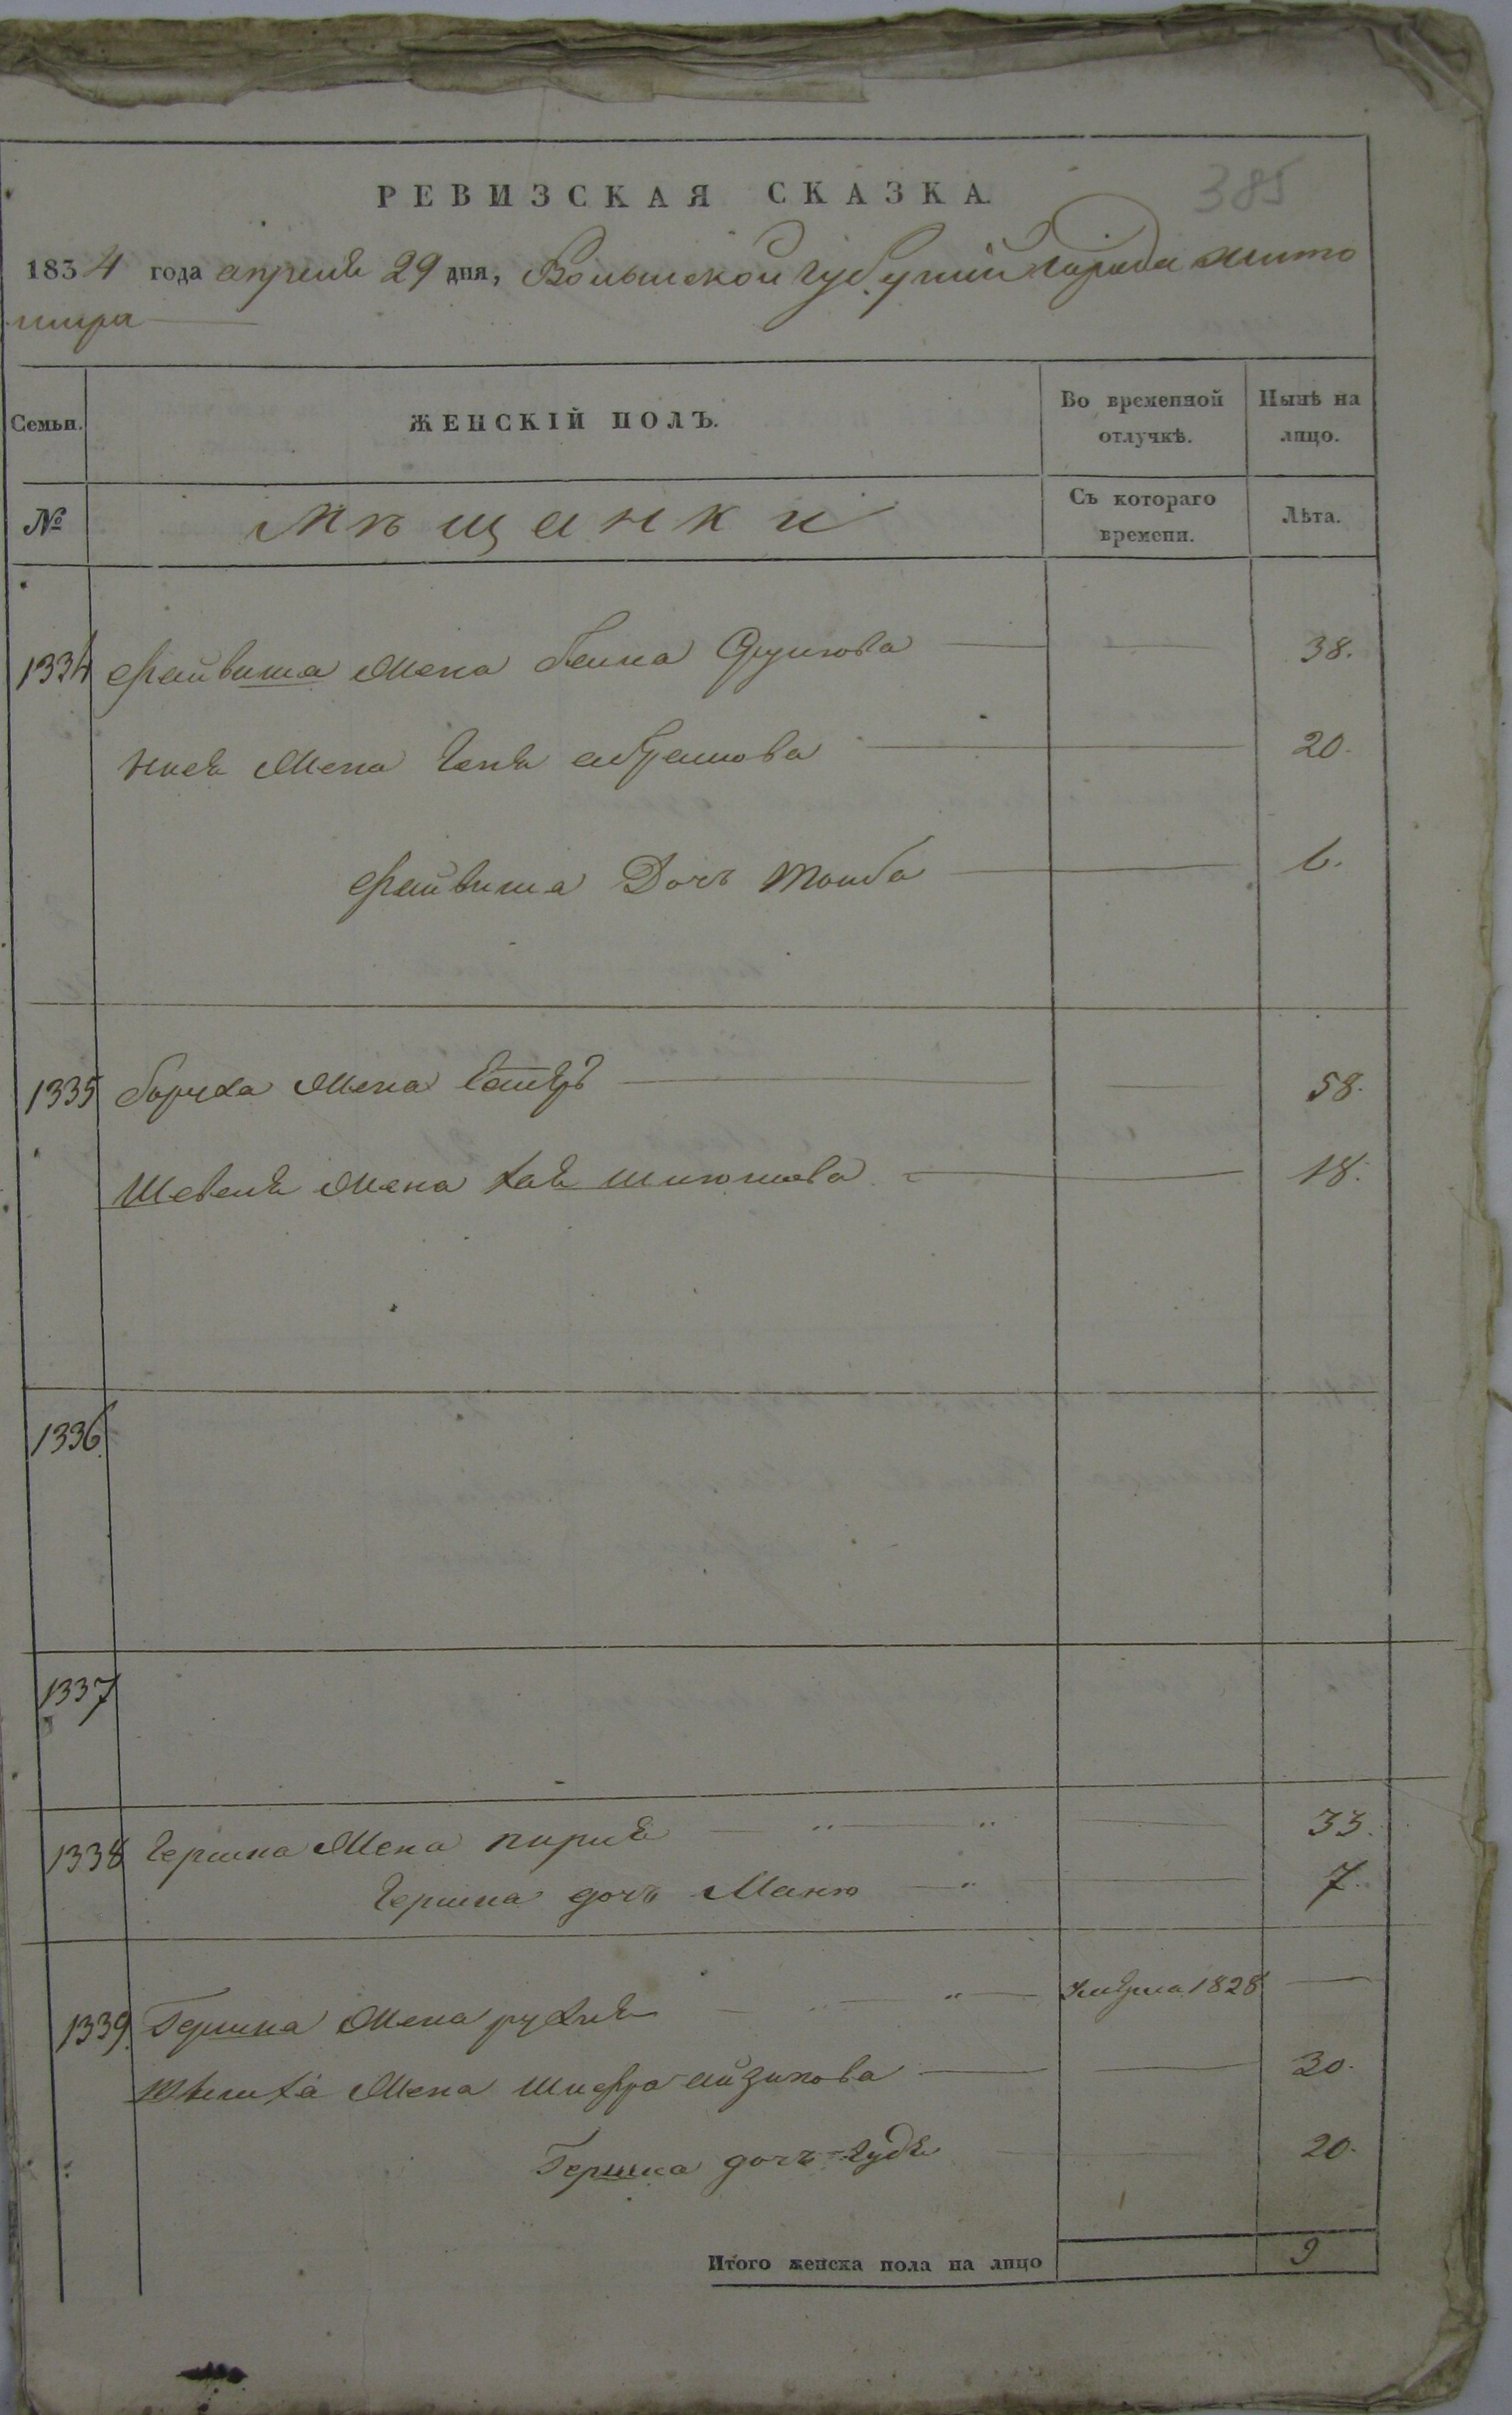 385
РЕВИЗСКАЯ СКАЗКА.
1834 года апреля 29 дня, Волынской губернии города жито
мира
Семьи. ЖЕНСКІЙ ПОЛЪ. Во временной отлучкѣ. Нынѣ на лицо.
№ мѣщанки Съ котораго времени. Лѣта.
1334 файвиша жена бейла 38.
жена абрамова 20.
файвиша дочь тойба 6.
1335 боруха жена Естеръ 58.
Шевеля жена хая шлюмова 18.
1336
1337
1338 Гершка жена перля 33.
Гершка дочь 7.
1339 Гершка жена рухля 1828
жена шифра айзикова 30.
Гершка дочь 20.
Итого женска пола на лицо 9